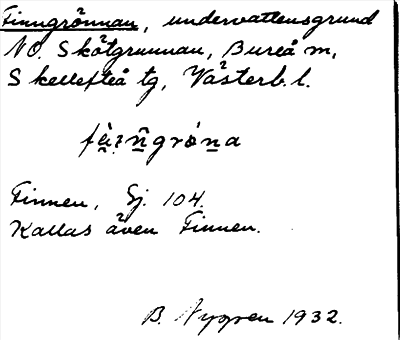 Finngrönnan, undervattensgrund
NO. Skötgrunnan, Bureå m,
Skellefteå tg, Västerb. l.
Finnen, Sj. 104.
Kallas även Finnen.
B. Nygren 1932.